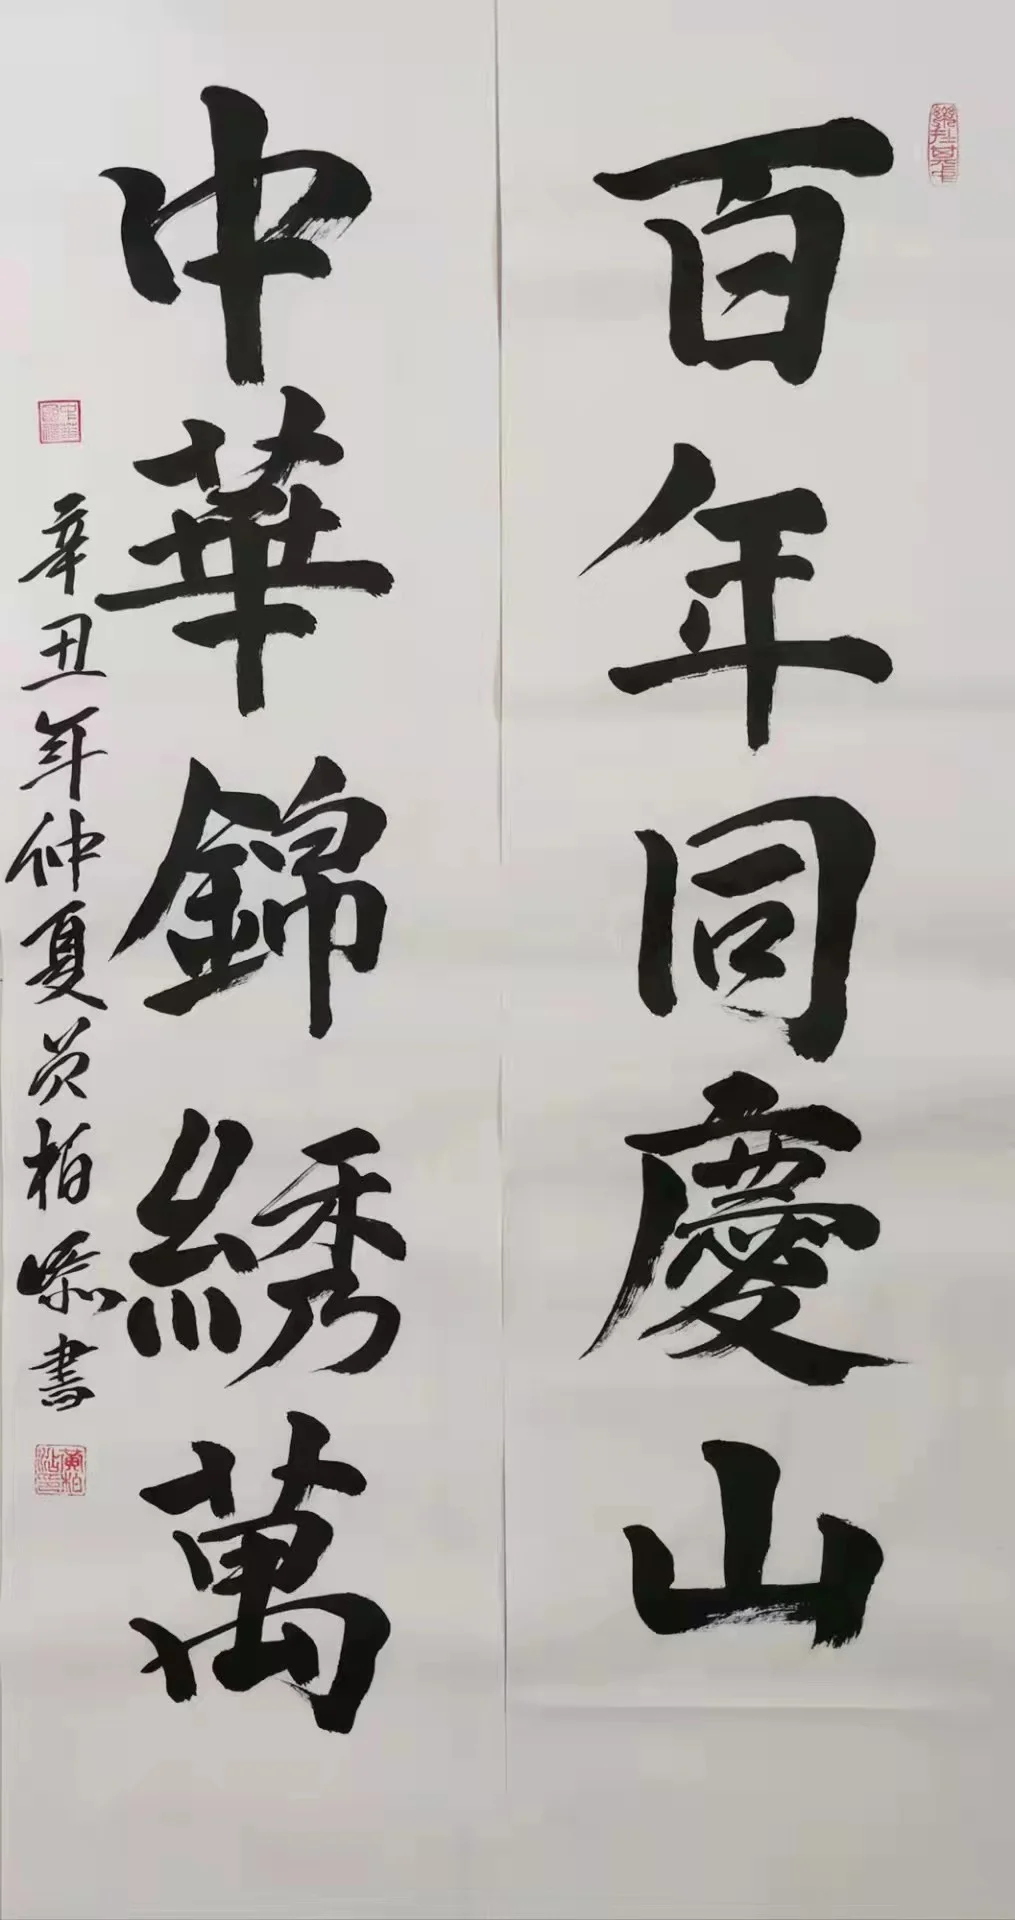 百年同慶山
中華錦綉萬
辛丑年仲夏黄柏添書